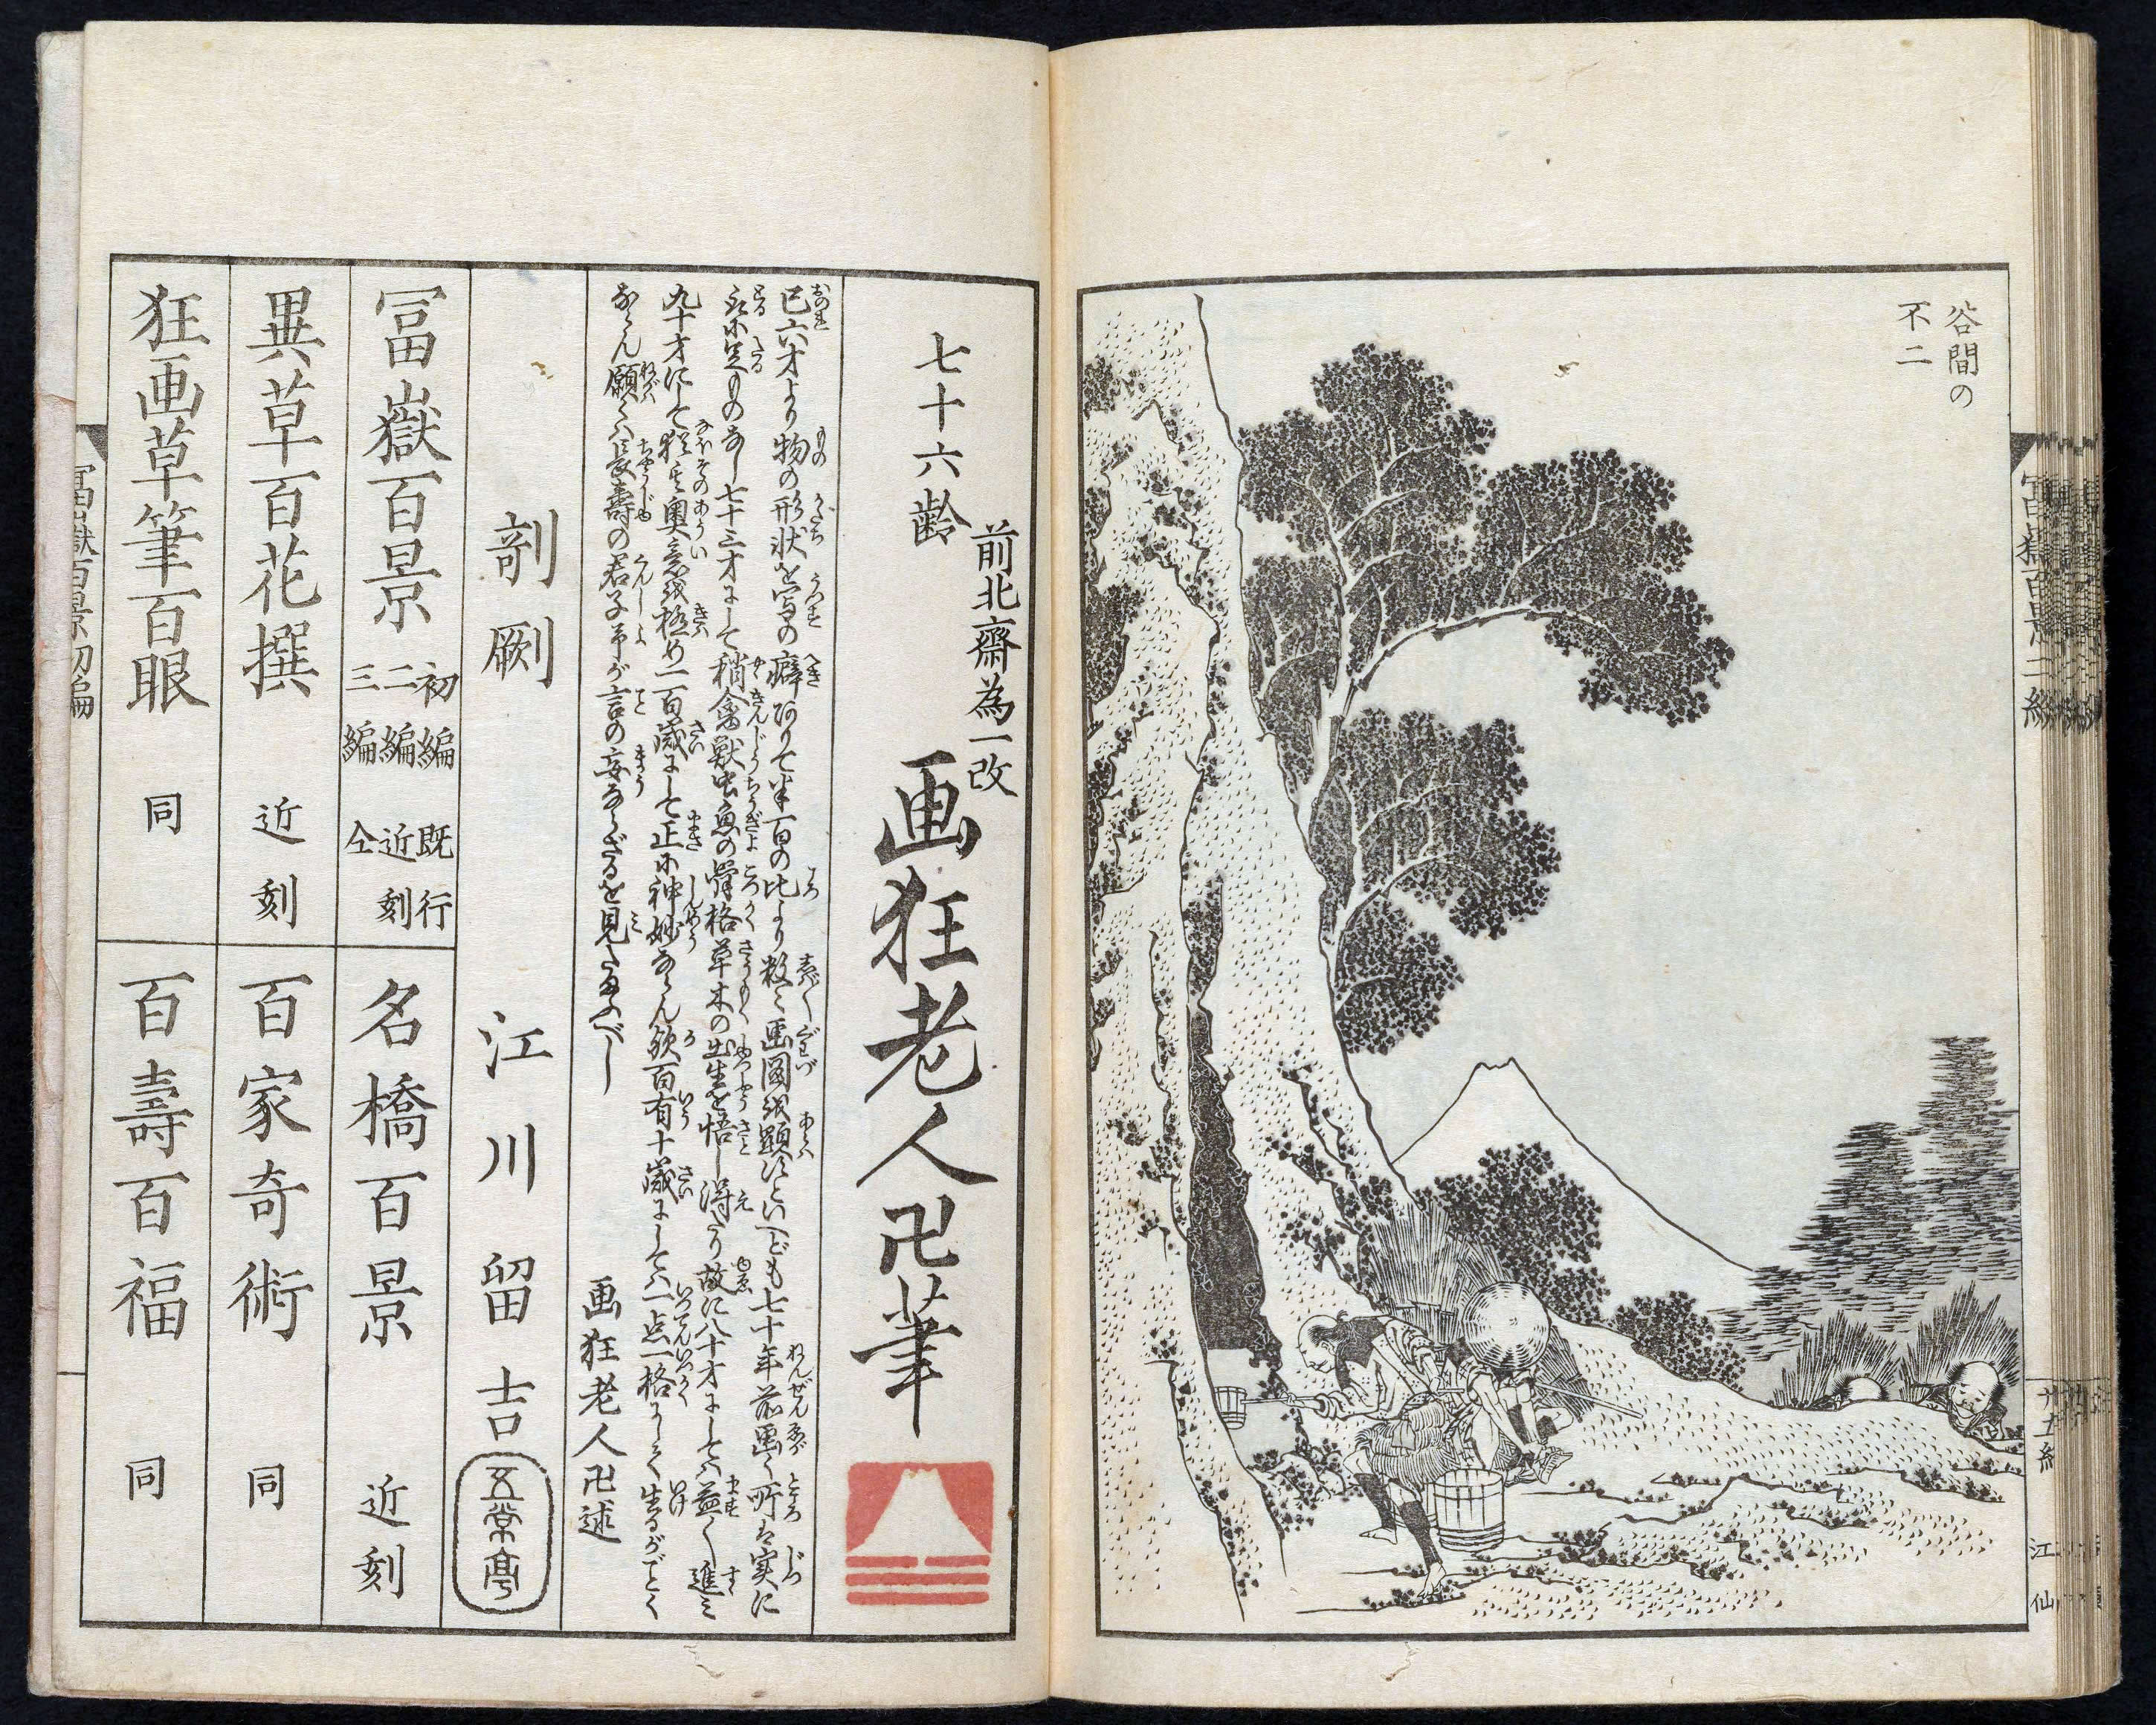 谷間の
不二
冨嶽百景二編
廿五終
江仙
七十六齢
前北斎為一改
画狂老人卍筆
己六才より物の形状を写の癖ありて半百の比より数々画図を顕すといへども七十年前画く所は実に
取に足ものなし七十三才にして稍禽獣虫魚の骨格草木の出生を悟し得たり故に八十才にしては益々進み
九十才にして猶其奥意を極め一百歳にして正に神妙ならん歟百有十歳にしては一点一格にして生るがごとく
ならん願くは長寿の君子予が言の妄ならざるを見たまふべし
画狂老人卍述
剞劂
江川留吉
五常亭
冨嶽百景
初編 既行
二編 近刻
三編 仝
名橋百景 近刻
異草百花撰 近刻
百家奇術 同
狂画草筆百眼 同
百壽百福 同
冨嶽百景初編